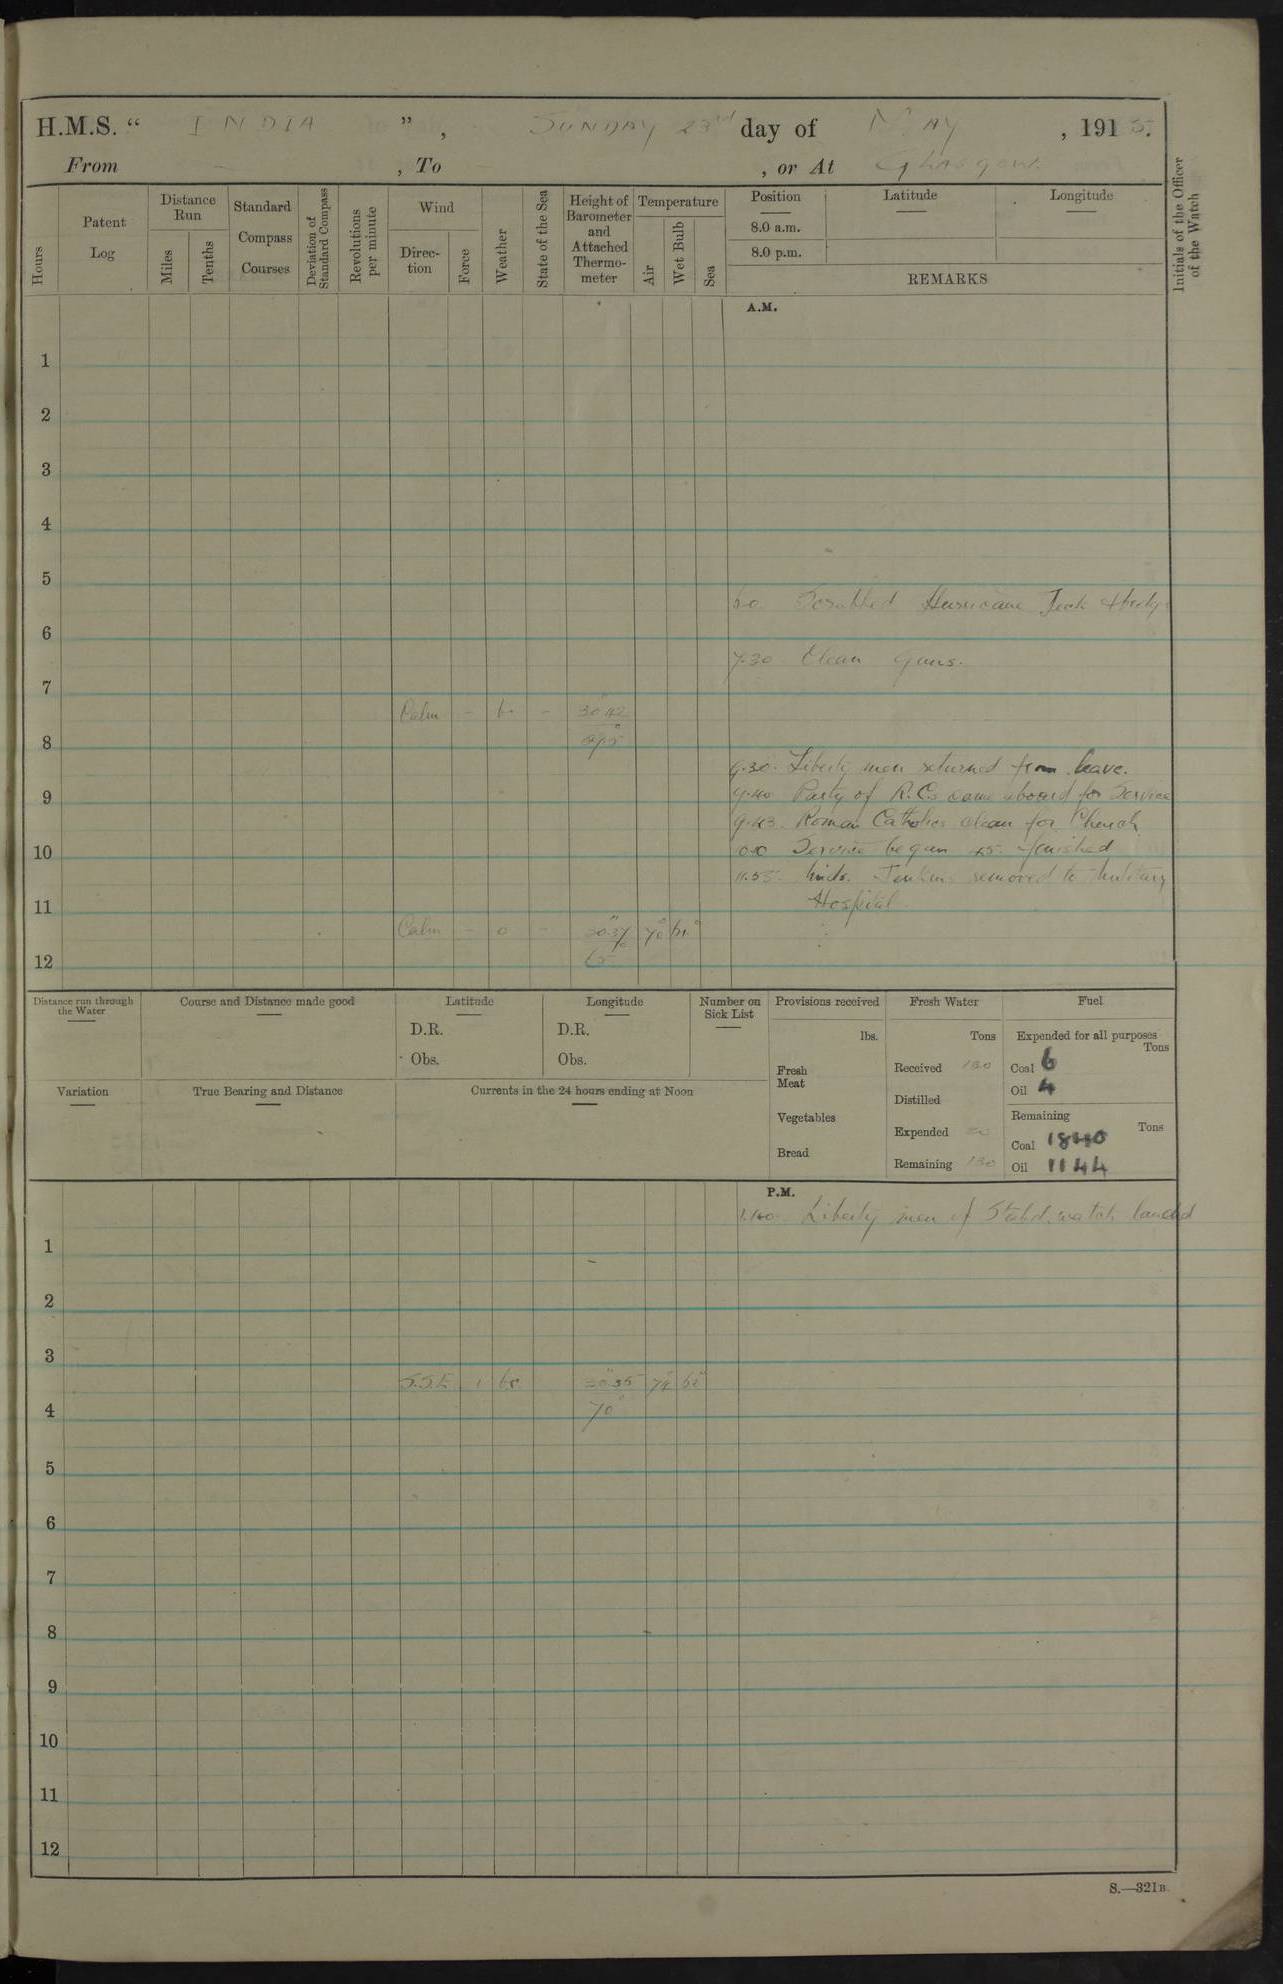 H.M.S. “ INDIA ” , SUNDAY 23rd day of MAY , 1915.
From - , To - , or At Glasgow.
Hours
Patent Log
Distance Run
Miles
Tenths
Standard Compass Courses
Deviation of Standard Compass
Revolutions per minute
Wind
Direc-tion
Force
Weather
State of the Sea
Height of Barometer and Attached Thermo-meter
Temperature
Air
Wet Bulb
Sea
Position
8.0 a.m.
8.0 p.m.
Latitude
Longitude
REMARKS
Initials of the Officer of the Watch
A.M.
1
2
3
4
5
6.0 Scrubbed Hurricane Deck
6
7.30 Clean Guns.
7
Calm - - 30.42
8
9.30. Liberty men returned from leave.
9.40 Party of R.Cs came aboard for Service
9
9.43. Roman Catholics clean for Church
10
Service began finished
11.55. removed to Military
Hospital
11
Calm - o - 30.37 70
65
12
Distance run through the Water
Course and Distance made good
Latitude
D.R.
Obs.
Longitude
D.R.
Obs.
Number on Sick List
Variation
True Bearing and Distance
Currents in the 24 hours ending at Noon
Provisions received
lbs.
Fresh Meat
Vegetables
Bread
Fresh Water
Tons
Received 130
Distilled
Expended 20
Remaining 130
Fuel
Expended for all purposes
Tons
Coal 6
Oil 4
Remaining
Tons
Coal 1840
Oil 1144
P.M.
1.40. Liberty men of Stabd. watch landed
1
2
3
S.S.E. 1 bc 30.35 74
70°
4
5
6
7
8
9
10
11
12
S.—321B.